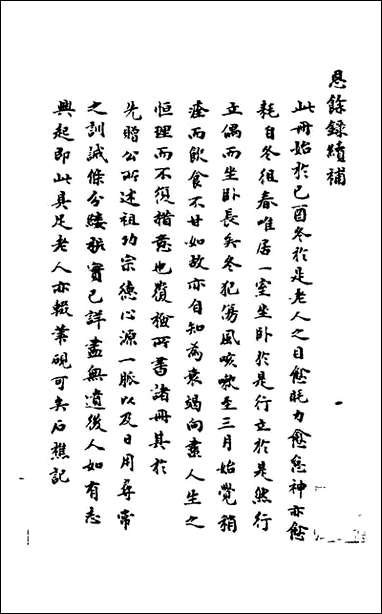 恩餘錄續補
此冊始於己酉冬於是老人之目愈眊力愈怠神亦愈
耗自冬徂春唯居一室坐卧於是行立於是然行
立偶而坐卧長矣冬犯傷風咳嗽至三月始覺稍
痊而飲食不甘如故亦自知為衰竭向盡人生之
恒理而不復措意也復檢所書諸冊其於
先贈公所述祖功宗德心源一脈以及日用尋常
之訓誡條分縷析實已詳盡無遺後人如有志
興起即此具足老人亦輟筆硯可矣石樵記